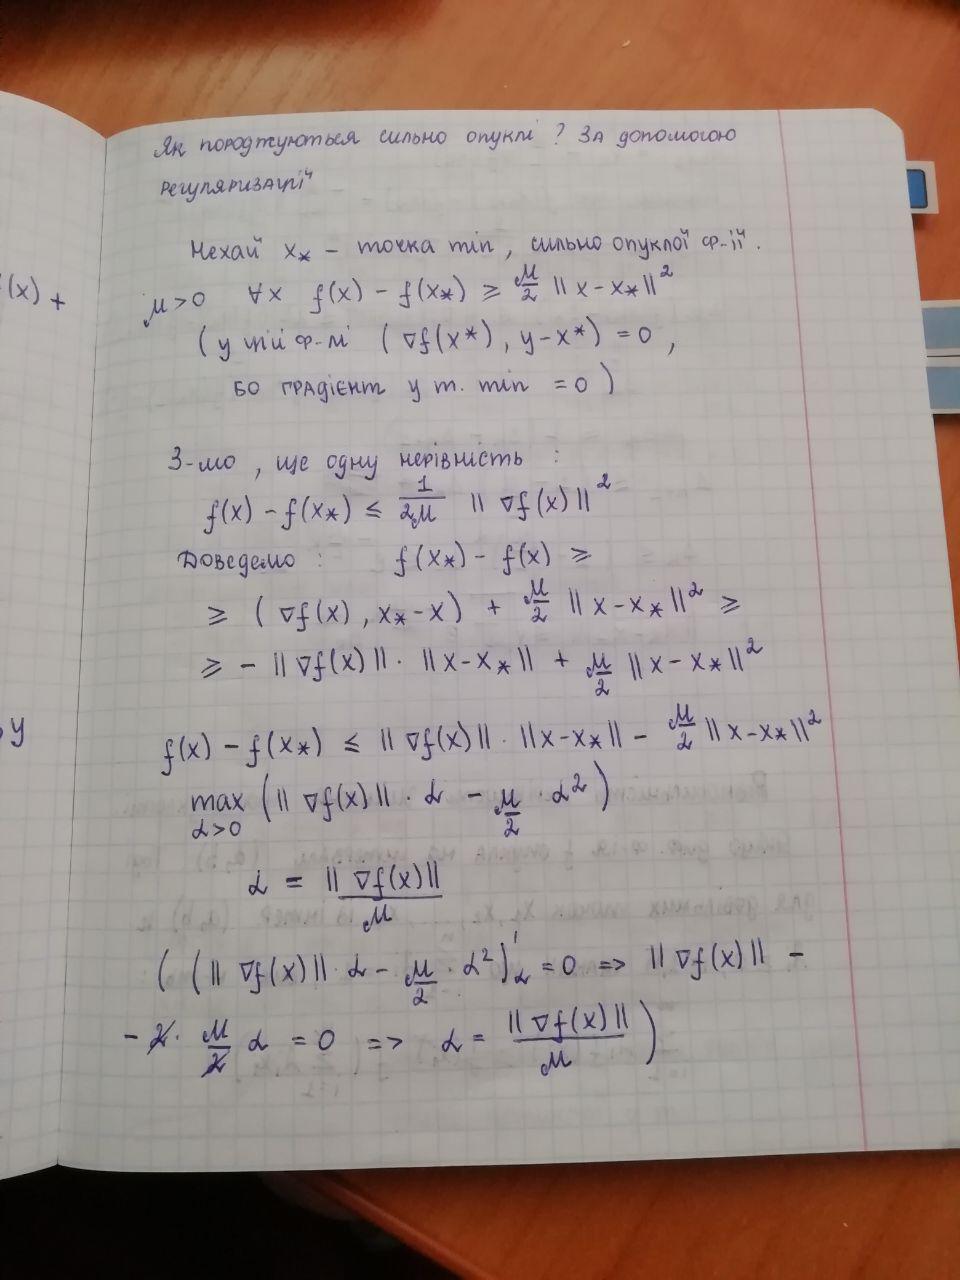 Як породжуються сильно опуклі ? За допомогою
регуляризації
Нехай x* – точка min, сильно опуклої ф-ії.
μ>0 ∀x f(x) – f(x*) ≥ μ/2 ||x – x*||²
f(x) +
( у цій ф-лі (∇f(x*), y – x*) = 0 ,
бо градієнт у т. min = 0 )
З-мо , ще одну нерівність :
f(x) – f(x*) ≤ 1/2μ ||∇f(x)||²
Доведемо : f(x*) – f(x) ≥
≥ (∇f(x), x* – x) + μ/2 ||x – x*||² ≥
≥ – ||∇f(x)|| · ||x – x*|| + μ/2 ||x – x*||²
у
f(x) – f(x*) ≤ ||∇f(x)|| · ||x – x*|| – μ/2 ||x – x*||²
max (||∇f(x)|| · α – μ/2 · α²)
α>0
α = ||∇f(x)||/μ
( (||∇f(x)|| · α – μ/2 · α²)'α = 0 => ||∇f(x)|| –
– 2 · μ/2 α = 0 => α = ||∇f(x)||/μ )